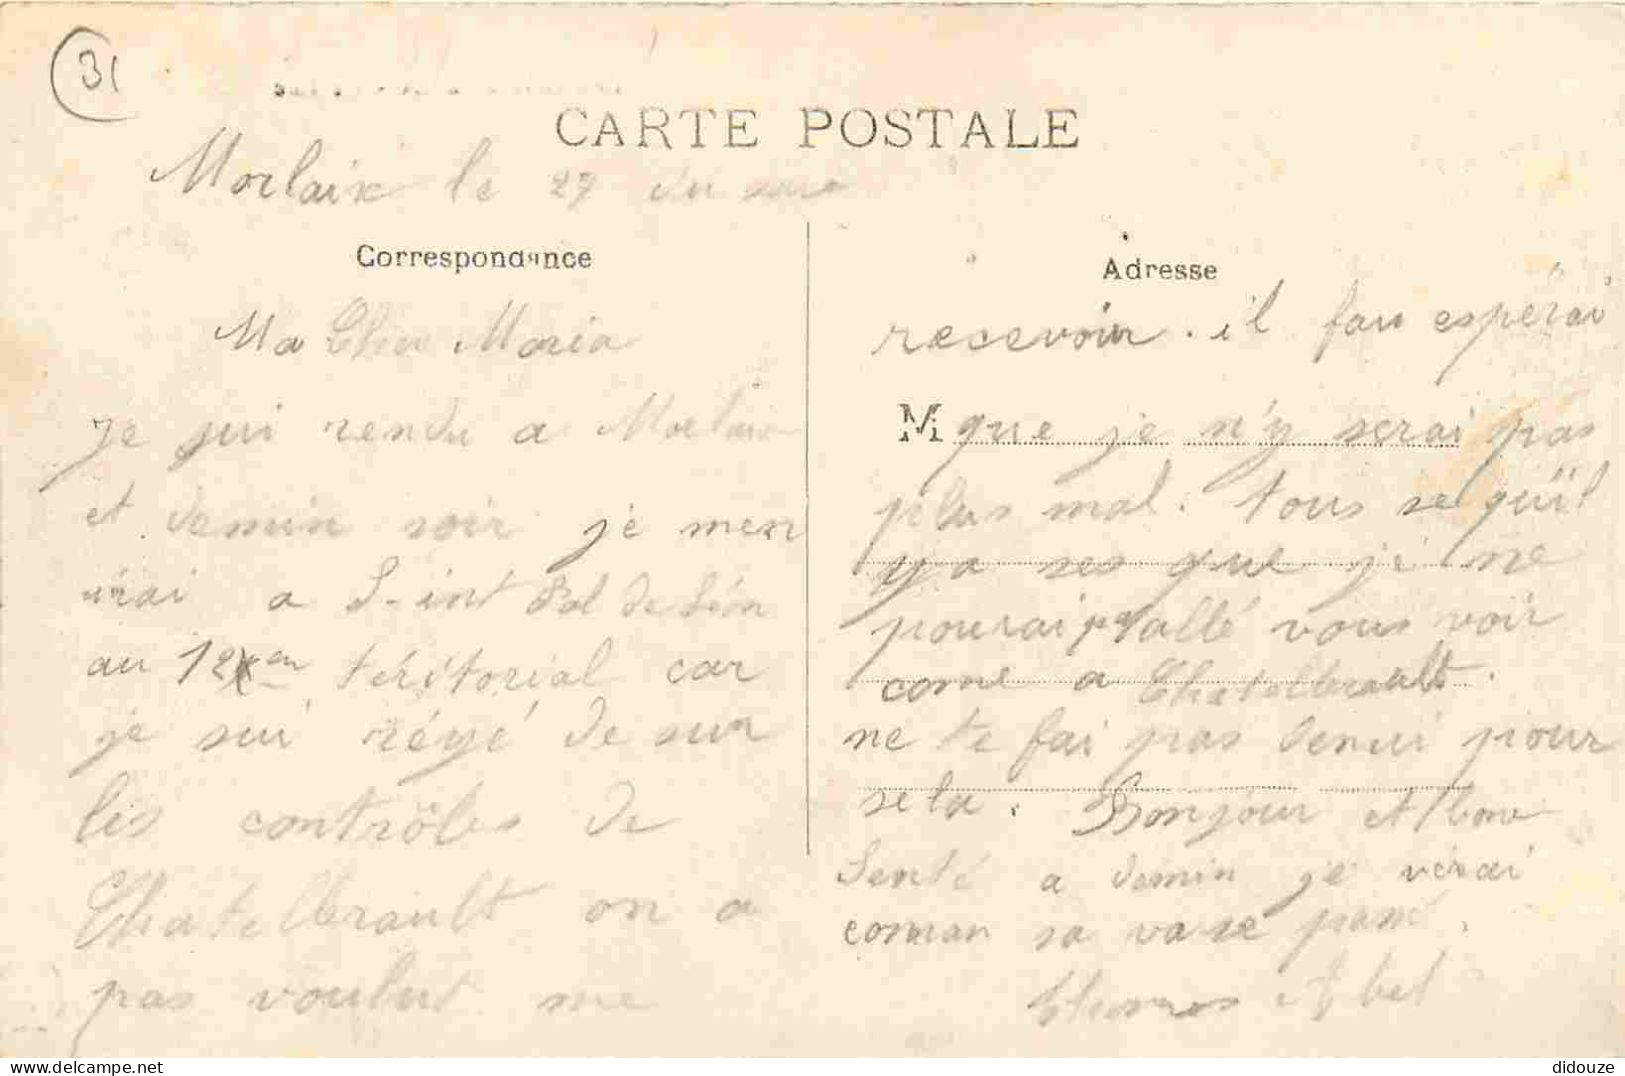 31
CARTE POSTALE
Morlaix le 27 du
Correspondance
Ma Cher Maria
je sui rendu a Morlaix
et demin soir je men
irai a S-int Pol de Léon
au 12 en téritorial car
je sui réyé de sur
les contrôles de
Chatellerault on a
pas voulut me
Adresse
recevoir. il fau espérai
M que je n'y serai pas
plus mal. tous se qu'il
y a ses que je ne
pourai pas allé vous voir
come a Chatellerault.
ne te fai pas denui pour
sela. Bonjour et bone
Senté a demin je vérai
comman sa va se passé.
Abel
didouze